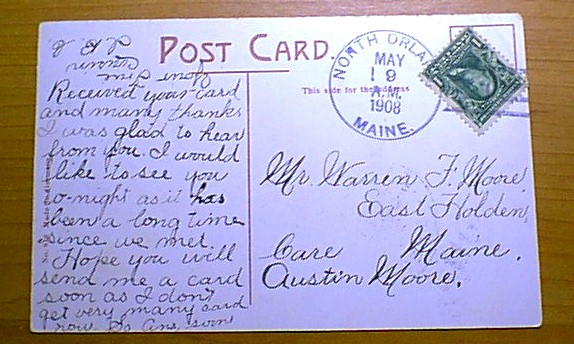 POST CARD.
This side for the address
NORTH ORLA
MAY
19
A.M.
1908
MAINE.
Received your card
and many thanks
I was glad to hear
from you. I would
like to see you
to-night as it has
been a long time
since we met.
Hope you will
send me a card
soon as I don't
get very many card
now So Ans. soon
Mr. Warren F. Moore
East Holden,
Care Maine.
Austin Moore.